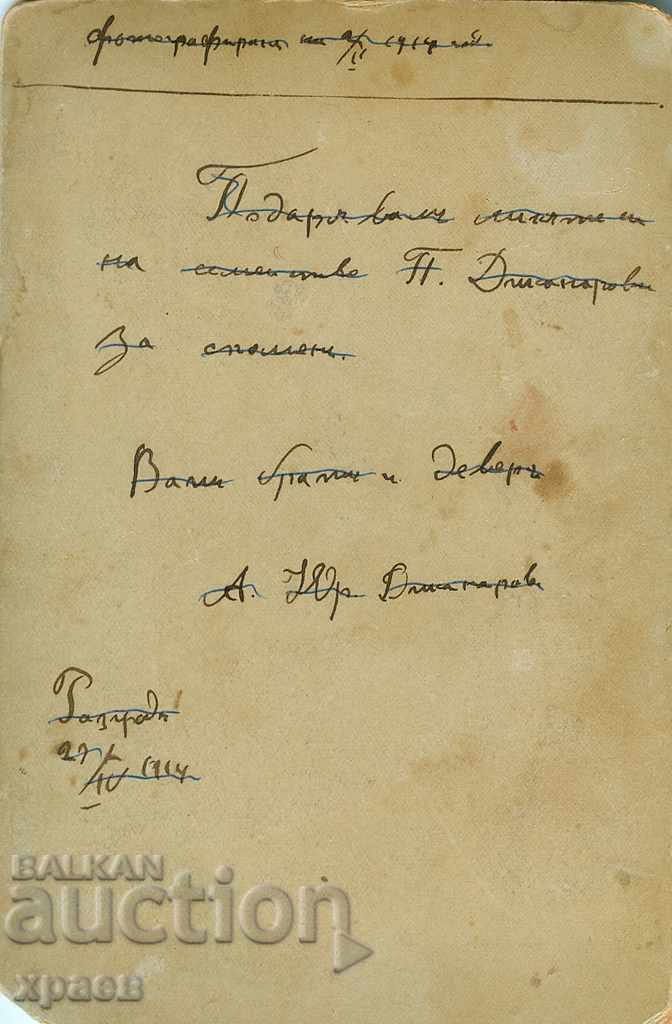 фотографирани на 2/II 1914 год
Подарявамъ ликътъ си
на семейство П. Джапарови
За споменъ.
Вашъ братъ и деверъ
А. Юр. Джапаровъ
Разградъ
27/IV 1914
BALKAN
auction
храев